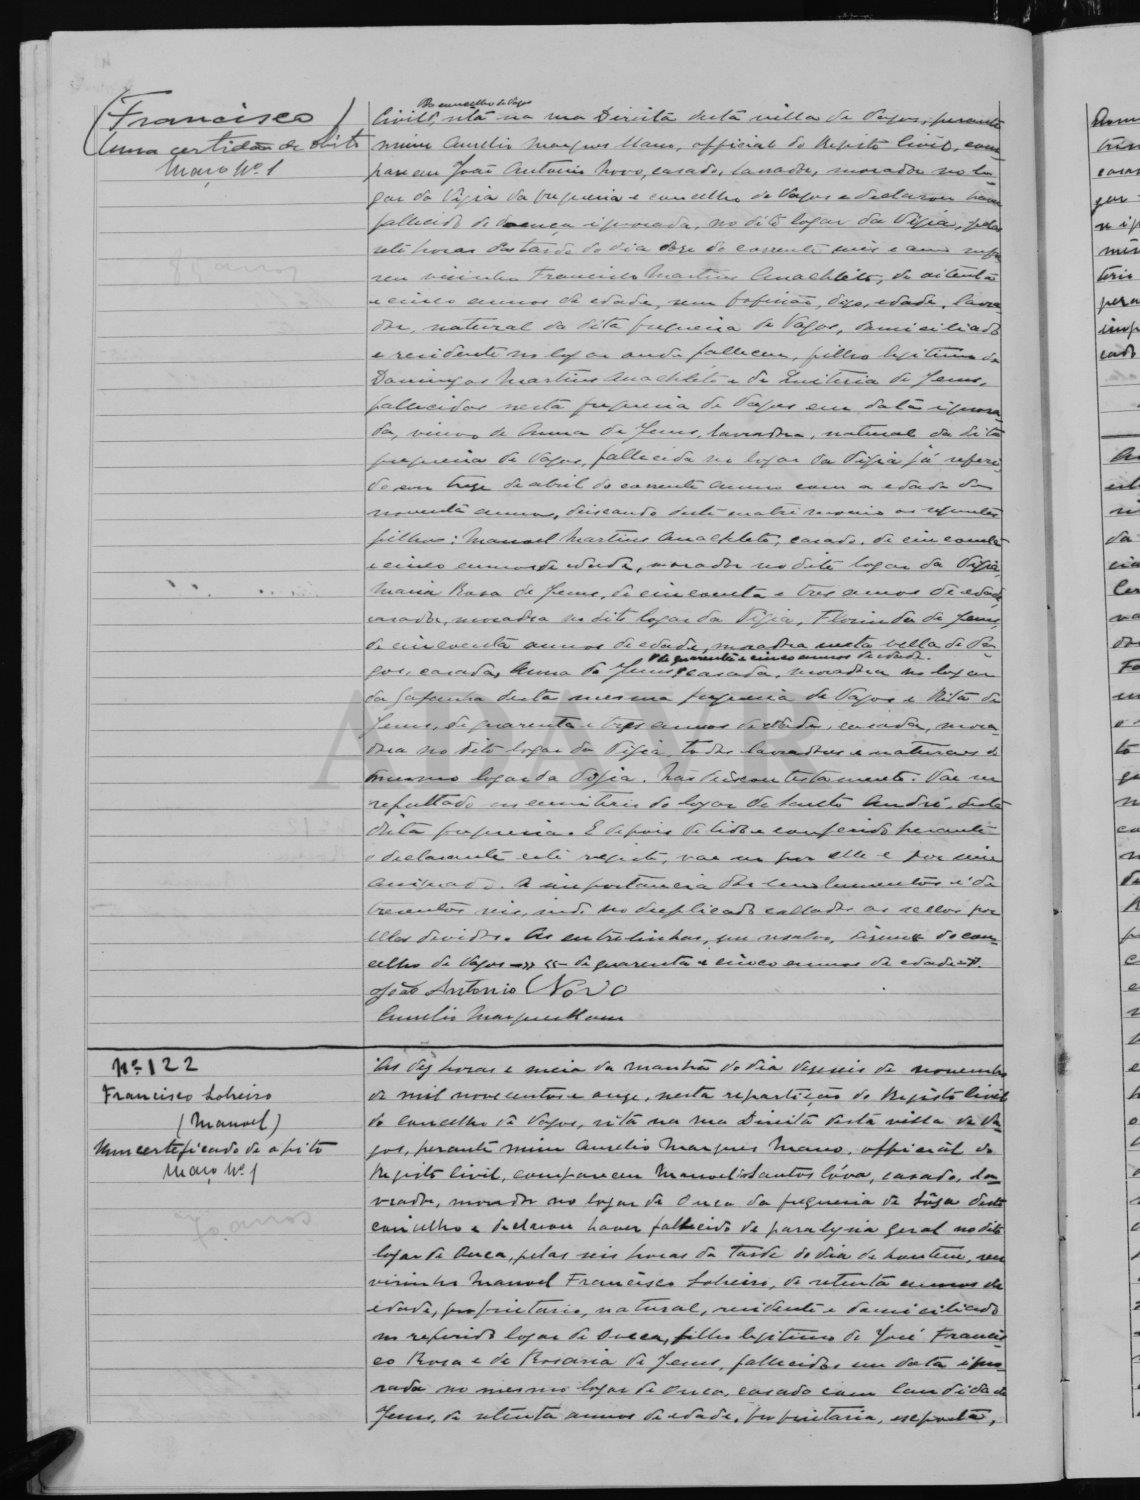 (Francisco)
Uma certidão de obito
Março Nº 1
do concelho de Vagos
Civil, sita na rua Direita desta villa de Vagos, perante
mim Aurelio Marques Mano, official do Registo civil, com-
pareceu João Antonio Novo, casado, lavrador, morador no lo-
gar da Vigia da freguesia e concelho de Vagos e declarou haver
fallecido de doença ignorada, no dito logar da Vigia, pelas
sete horas da tarde do dia doze do corrente mez e anno
seu visinho Francisco Martins Anachleto, de oitenta
e cinco annos de edade, sem profissão, digo, edade, lavra-
dor, natural da dita freguesia de Vagos, domiciliado
e residente no logar onde falleceu, filho legitimo de
Domingos Martins Anachleto e de Quiteria de Jesus,
fallecidos nesta freguesia de Vagos em data ignora-
da, viuvo de Anna de Jesus, lavradora, natural da dita
freguesia de Vagos, fallecida no logar da Vigia já referi-
do em treze de abril do corrente anno com a edade de
noventa annos, deixando deste matrimonio os seguintes
filhos: Manoel Martins Anachleto, casado, de cincoenta
e cinco annos de edade, morador no dito logar da Vigia,
Maria Rosa de Jesus, de cincoenta e tres annos de edade,
casada, moradora no dito logar da Vigia, Florinda de Jesus,
de cincoenta annos de edade, moradora nesta villa de Va-
de quarenta e cinco annos de edade.
gos, casada, Anna de Jesus, casada, moradora no logar
da Gafanha desta mesma freguesia de Vagos e Rita de
Jesus, de quarenta e tres annos de edade, casada, mora-
dora no dito logar da Vigia, todos lavradores e naturaes do
mesmo logar da Vigia. Não deixou testamento. Vae ser
sepultado no cemiterio do logar de Santo André, desta
dita freguesia. E depois de lido e conferido perante
o declarante este registo, vae ser por elle e por mim
assignado. A importancia dos emolumentos é de
trezentos reis, indo no duplicado collados os sellos por
elles devidos. As entrelinhas, que resalvo, dizem: do con-
celho de Vagos —» «— de quarenta e cinco annos de edade».
João Antonio Novo
Aurelio Marques Mano
Nº 122
Francisco Loureiro
(Manoel)
Um certificado de obito
Março Nº 1
70 annos
As dez horas e meia da manhã do dia dezeseis de novembro
de mil novecentos e onze, nesta repartição do Registo civil
do concelho de Vagos, sita na rua Direita desta villa de Va-
gos, perante mim Aurelio Marques Mano, official do
Registo civil, compareceu Manoel Santos Cóva, casado, la-
vrador, morador no logar de Ouca da freguesia de Sôza deste
concelho e declarou haver fallecido de paralysia geral no dito
logar de Ouca, pelas seis horas da tarde do dia de hontem, seu
visinho Manoel Francisco Loureiro, de setenta annos de
edade, proprietario, natural, residente e domiciliado
no referido logar de Ouca, filho legitimo de José Francis-
co Rosa e de Rosaria de Jesus, fallecidos em data igno-
rada no mesmo logar de Ouca, casado com Candida de
Jesus, de setenta annos de edade, proprietaria,